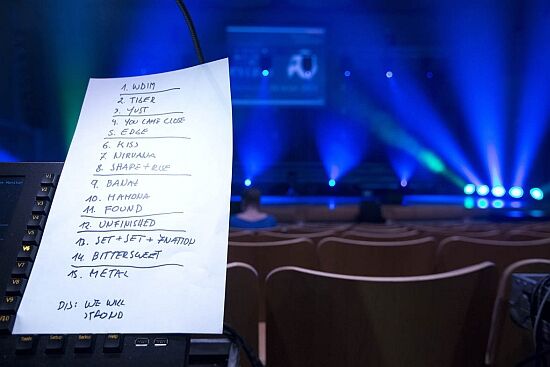 1. WDIM
2. TIGER
3. YUST
4. YOU CAME CLOSE
5. EDGE
6. KISS
7. NIRVANA
8. SHAPE + RISE
9. BANAL
10. MAMONA
11. FOUND
12. UNFINISHED
13. SET + SET + 7NATION
14. BITTERSWEET
15. METAL
DIS: WE WILL
STAND
V1
V2
V3
V4
V5
V6
V7
V8
V9
V10
Tools Setup Backup Help